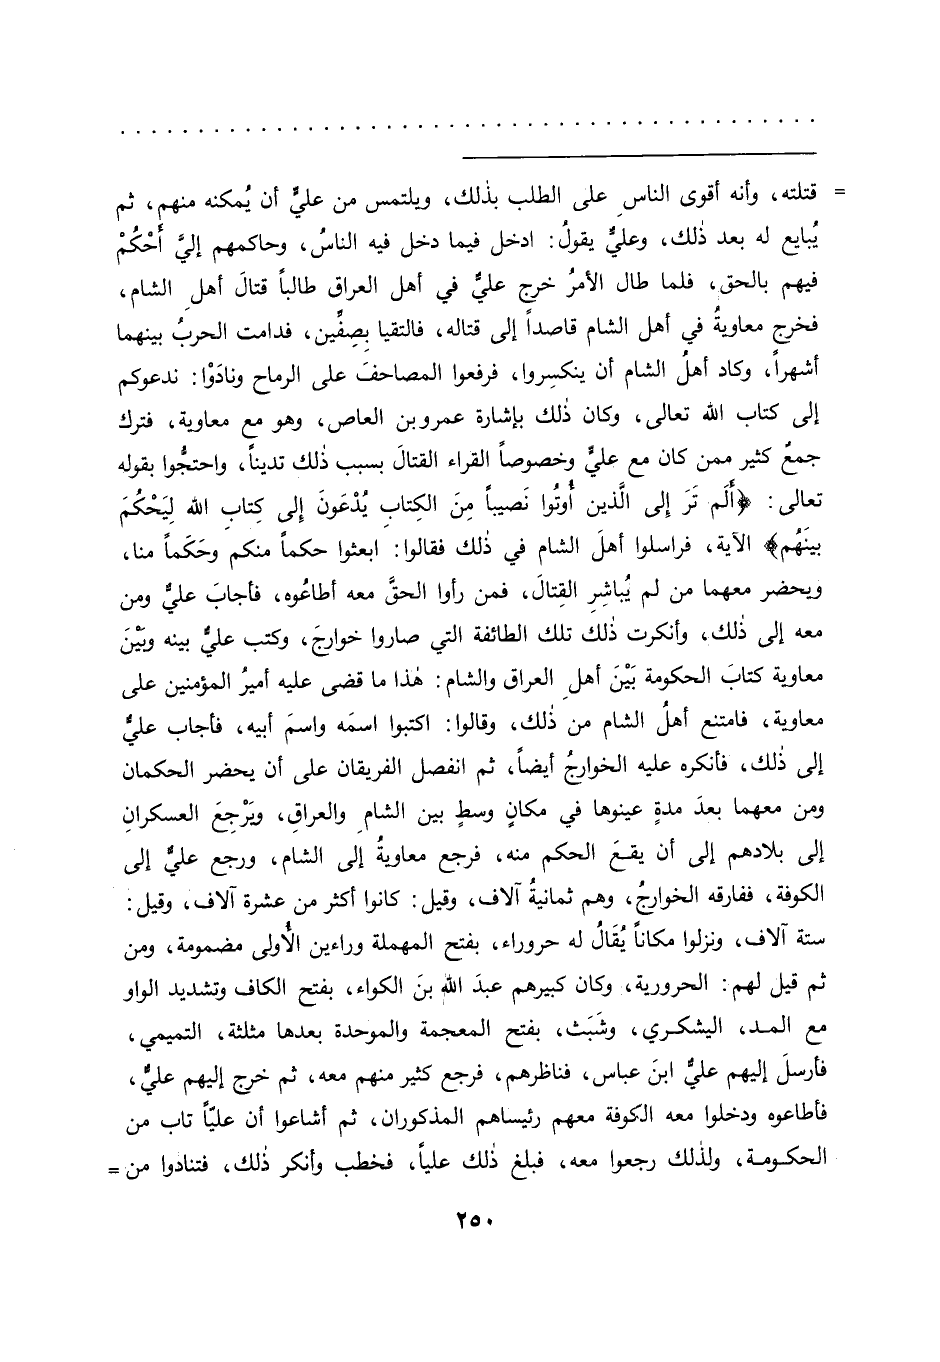 = قتلته، وأنه أقوى الناسِ على الطلب بذٰلك، ويلتمس من عليٍّ أن يُمكنه منهم، ثم
يُبايع له بعد ذٰلك، وعليٌّ يقولُ: ادخل فيما دخل فيه الناسُ، وحاكمهم إليَّ أَحْكُمْ
فيهم بالحق، فلما طال الأمرُ خرج عليٌّ في أهل العراق طالباً قتالَ أهلِ الشام،
فخرج معاويةُ في أهل الشام قاصداً إلى قتاله، فالتقيا بِصِفِّين، فدامت الحربُ بينهما
أشهراً، وكاد أهلُ الشام أن ينكسِروا، فرفعوا المصاحفَ على الرماح ونادَوْا: ندعوكم
إلى كتاب الله تعالى، وكان ذٰلك بإشارة عمرو بن العاص، وهو مع معاوية، فترك
جمعٌ كثير ممن كان مع عليٍّ وخصوصاً القراء القتالَ بسبب ذٰلك تديناً، واحتجُّوا بقوله
تعالى: ﴿أَلَم تَرَ إلى الَّذين أُوتُوا نَصيباً مِنَ الكِتابِ يُدْعَونَ إلى كِتابِ الله لِيَحْكُمَ
بينَهُم﴾ الآية، فراسلوا أهلَ الشام في ذٰلك فقالوا: ابعثوا حكماً منكم وحَكَماً منا،
ويحضر معهما من لم يُباشِرِ القِتالَ، فمن رأوا الحقَّ معه أطاعُوه، فأجابَ عليٌّ ومن
معه إلى ذٰلك، وأنكرت ذٰلك تلك الطائفة التي صاروا خوارجَ، وكتب عليٌّ بينه وبَيْنَ
معاوية كتابَ الحكومة بَيْنَ أهلِ العراق والشام: هٰذا ما قضى عليه أميرُ المؤمنين على
معاوية، فامتنع أهلُ الشام من ذٰلك، وقالوا: اكتبوا اسمَه واسمَ أبيه، فأجاب عليٌّ
إلى ذٰلك، فأنكره عليه الخوارجُ أيضاً، ثم انفصل الفريقان على أن يحضر الحكمان
ومن معهما بعدَ مدةٍ عينوها في مكانٍ وسطٍ بين الشامِ والعراقِ، ويَرْجِعَ العسكرانِ
إلى بلادهم إلى أن يقعَ الحكم منه، فرجع معاويةُ إلى الشام، ورجع عليٌّ إلى
الكوفة، ففارقه الخوارجُ، وهم ثمانيةُ آلاف، وقيل: كانوا أكثر من عشرة آلاف، وقيل:
ستة آلاف، ونزلوا مكاناً يُقَالُ له حروراء، بفتح المهملة وراءين الأُولى مضمومة، ومن
ثم قيل لهم: الحرورية، وكان كبيرهم عبدَ اللهِ بنَ الكواء، بفتح الكاف وتشديد الواو
مع المد، اليشكري، وشَبَث، بفتح المعجمة والموحدة بعدها مثلثة، التميمي،
فأرسلَ إليهم عليٌّ ابنَ عباس، فناظرهم، فرجع كثير منهم معه، ثم خرج إليهم عليٌّ،
فأطاعوه ودخلوا معه الكوفة معهم رئيساهم المذكوران، ثم أشاعوا أن عليّاً تاب من
الحكومة، ولذٰلك رجعوا معه، فبلغ ذٰلك علياً، فخطب وأنكر ذٰلك، فتنادوا من =
٢٥٠